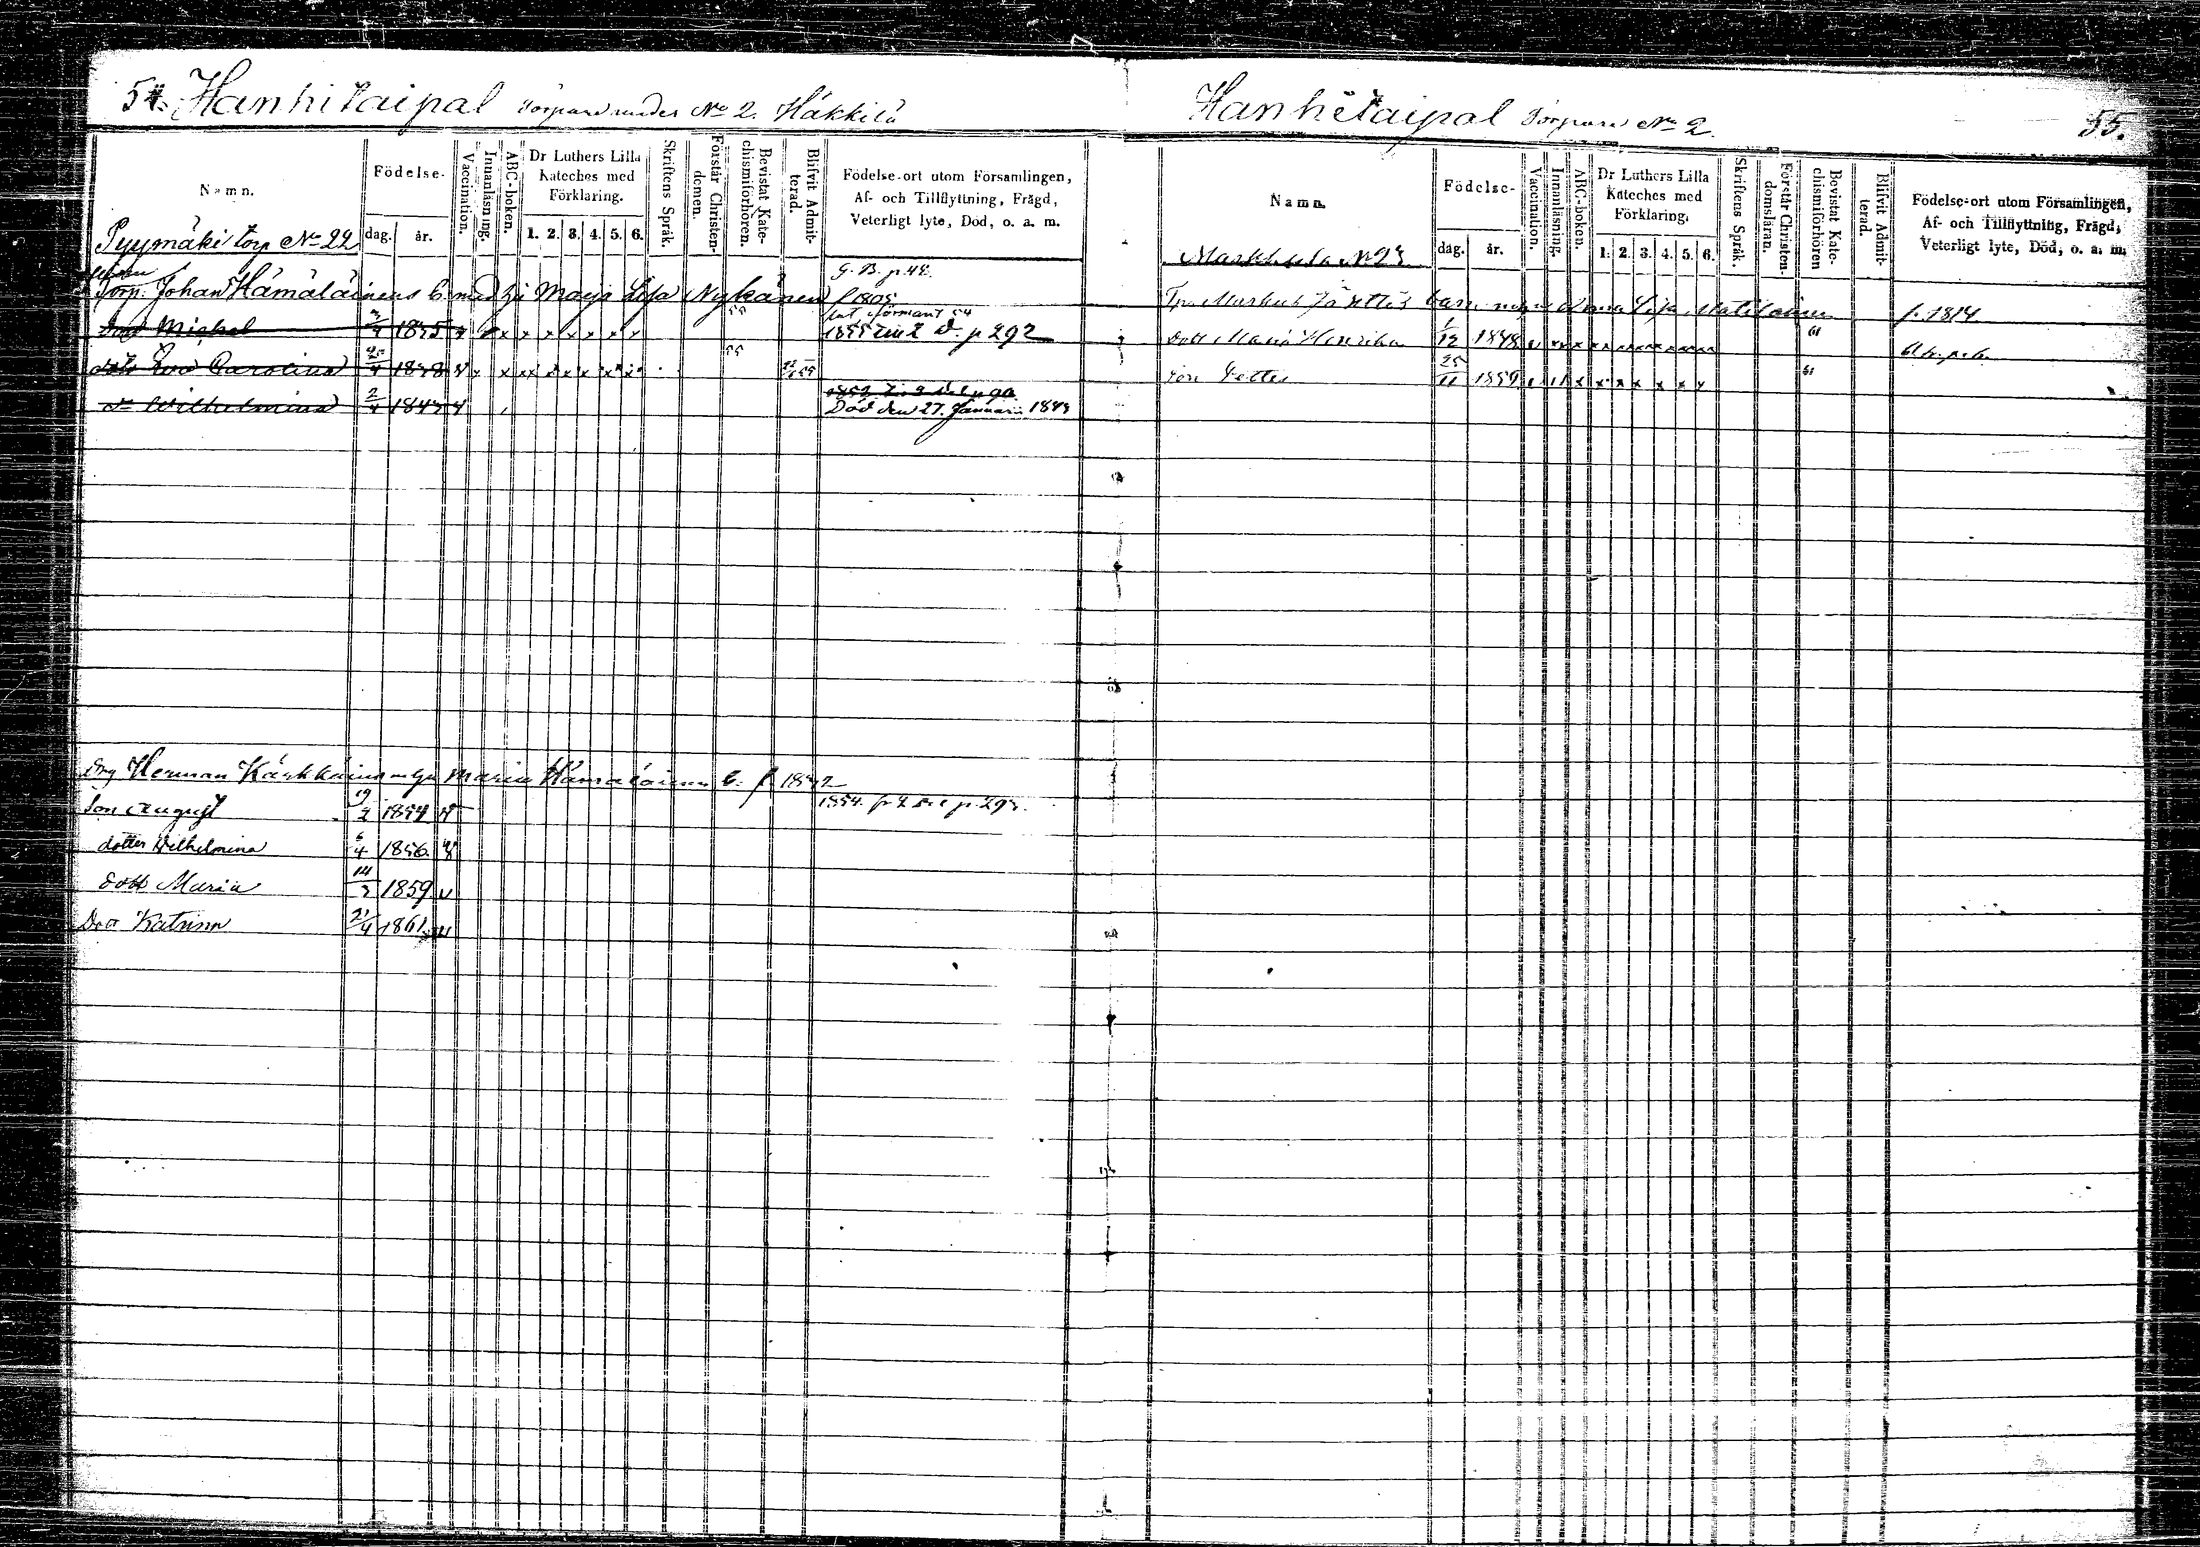 54. Hanhitaipal Torpare under No 2. Häkkilä
Namn.
Födelse-
dag. år.
Vaccination.
Innanläsning.
ABC-boken.
Dr Luthers Lilla
Kateches med
Förklaring.
1. 2. 3. 4. 5. 6.
Skriftens Språk.
Förstår Christen-
domen.
Bevistat Kate-
chismiförhören.
Blifvit Admit-
terad.
Födelse-ort utom Församlingen,
Af- och Tillflyttning, Frägd,
Veterligt lyte, Död, o. a. m.
Pyymäki torp No 22
G. B. p. 42.
Torp. Johan Hämäläinens b. med Maija Lisa Nykänen f 1805
Michel 3/4 1835 x x x x x x x
1855 till 2 d. p 292
55
dotr Eva Carolina 25/4 1838 x x x x x x x x
55
do Wilhelmina 2/4 1843
Död den 27. Januari 1849
Drg Herman Kärkkäinen Maria Hämäläinen b. f 1832
Son August 19/2 1854
1854. fr 2 del p. 293.
dotter Wilhelmina 6/4 1856.
dott Maria 14/3 1859
Dotr Katrina 21/4 1861.
Hanhitaipal Torpare No 2. 55.
Namn.
Födelse-
dag. år.
Vaccination.
Innanläsning.
ABC-boken.
Dr Luthers Lilla
Kateches med
Förklaring.
1. 2. 3. 4. 5. 6.
Skriftens Språk.
Förstår Christen-
domsläran.
Bevistat Kate-
chismiförhören
Blifvit Admit-
terad.
Födelse-ort utom Församlingen,
Af- och Tillflyttning, Frägd,
Veterligt lyte, Död, o. a. m.
Markkula No 23
Markus barn Anna Lisa f. 1814
Dott Maria Henrika 1/12 1848
61
Son Petter 25/11 1850
61